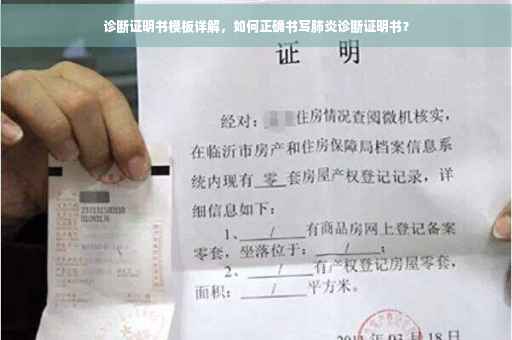 诊断证明书模板详解，如何正确书写肺炎诊断证明书？
证 明
经对：住房情况查阅微机核实，
在临沂市房产和住房保障局档案信息系
统内现有 零 套房屋产权登记记录，详
细信息如下：
1、 / 有商品房网上登记备案
零套，坐落位于： / ；
2、 / 有产权登记房屋零套，
面积： / 平方米。
月 18 日